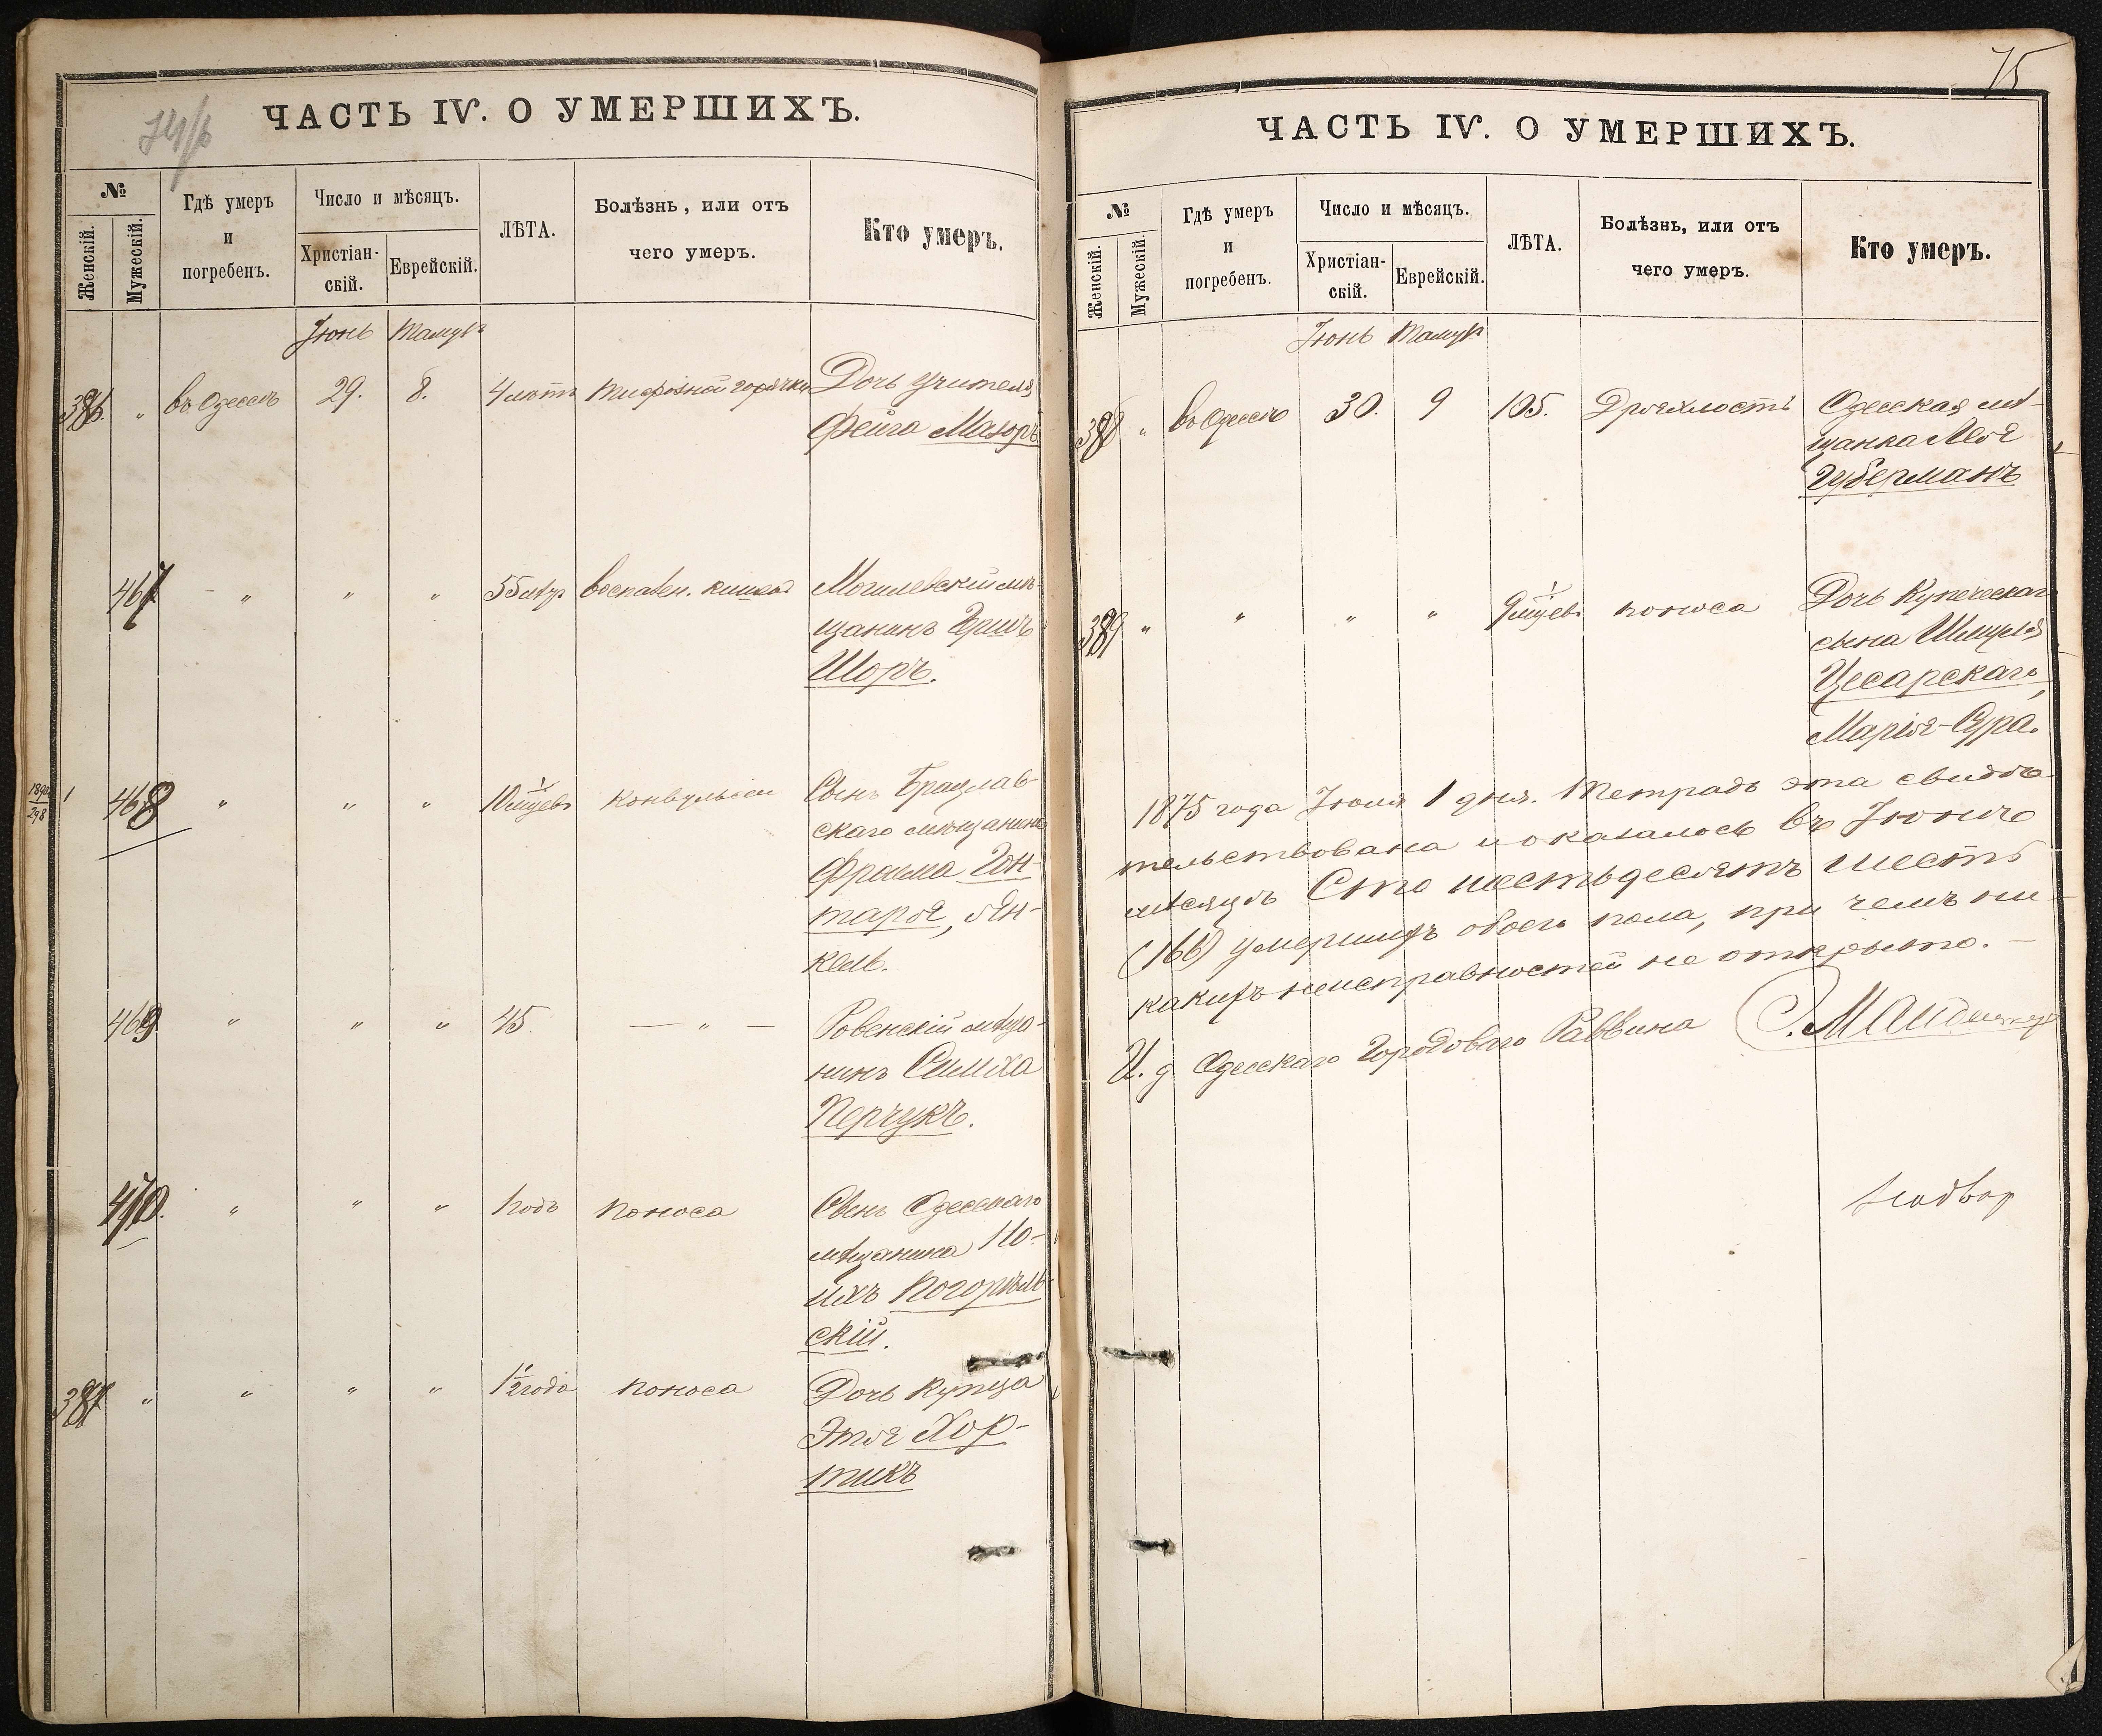 74/б
ЧАСТЬ IV. О УМЕРШИХЪ.
№
Женскій.
Мужескій.
Гдѣ умеръ
и
погребенъ.
Число и мѣсяцъ.
Христіан-
скій.
Еврейскій.
ЛѢТА.
Болѣзнь, или отъ
чего умеръ.
Кто умеръ.
Іюнь Тамузъ
386. „ въ Одессѣ 29. 8. 4 лѣтъ тифозной горячки Дочь учителя
Фейга Мазоръ
467 – „ „ „ 55 лѣтъ воспален. кишекъ Могилевскій мѣ-
щанинъ Гершъ
Шоръ.
1890
298
468 „ „ „ 10 мѣсяцевъ конвульсіи Сынъ Брацлав-
скаго мѣщанина
Фроима Гон-
таря, Ян-
кель.
469 „ „ „ 45. — „ — Ровенскій мѣща-
нинъ Симха
Перчукъ.
470. „ „ „ 1 годъ поноса Сынъ Одесскаго
мѣщанина Но-
ихъ Погорѣль-
скій.
387 „ „ „ „ 1½ года поноса Дочь купца
Этя Хор-
тикъ
75
ЧАСТЬ IV. О УМЕРШИХЪ.
№
Женскій.
Мужескій.
Гдѣ умеръ
и
погребенъ.
Число и мѣсяцъ.
Христіан-
скій.
Еврейскій.
ЛѢТА.
Болѣзнь, или отъ
чего умеръ.
Кто умеръ.
Іюнь Тамузъ
388 „ въ Одессѣ 30. 9 105. Дряхлость Одесская мѣ-
щанка Лея
Губерманъ
389 „ „ „ „ 9 мѣсяцевъ поноса Дочь Купеческаго
сына Шмуля
Цесарскаго,
Марія-Сура.
1875 года Іюля 1 дня. Тетрадь эта свидѣ-
тельствована и оказалось въ Іюнѣ
мѣсяцѣ Сто шестьдесятъ шесть
(166) умершихъ обоего пола, при чемъ ни-
какихъ неисправностей не открыто. —
И. д. Одесскаго Городоваго Раввина